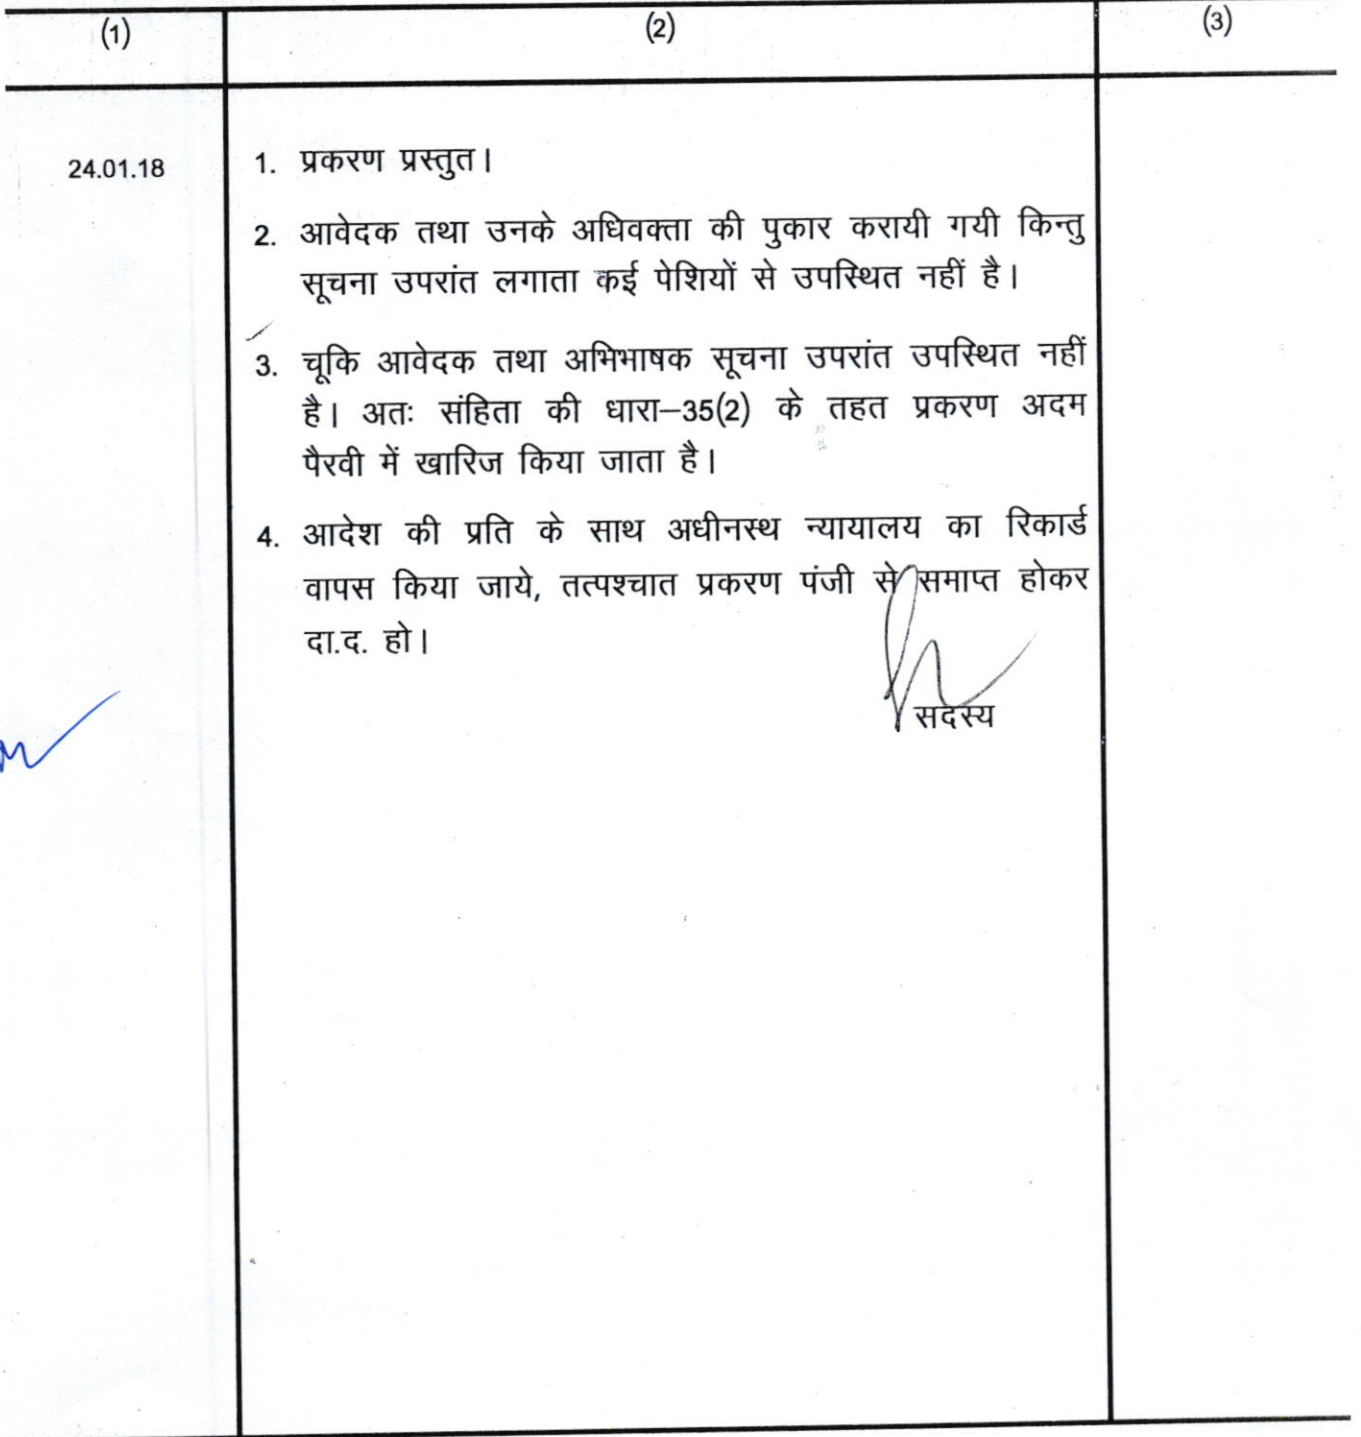 (1) (2) (3)
24.01.18 1. प्रकरण प्रस्तुत।
2. आवेदक तथा उनके अधिवक्ता की पुकार करायी गयी किन्तु
सूचना उपरांत लगाता कई पेशियों से उपस्थित नहीं है।
3. चूकि आवेदक तथा अभिभाषक सूचना उपरांत उपस्थित नहीं
है। अतः संहिता की धारा–35(2) के तहत प्रकरण अदम
पैरवी में खारिज किया जाता है।
4. आदेश की प्रति के साथ अधीनस्थ न्यायालय का रिकार्ड
वापस किया जाये, तत्पश्चात प्रकरण पंजी से समाप्त होकर
दा.द. हो।
सदस्य